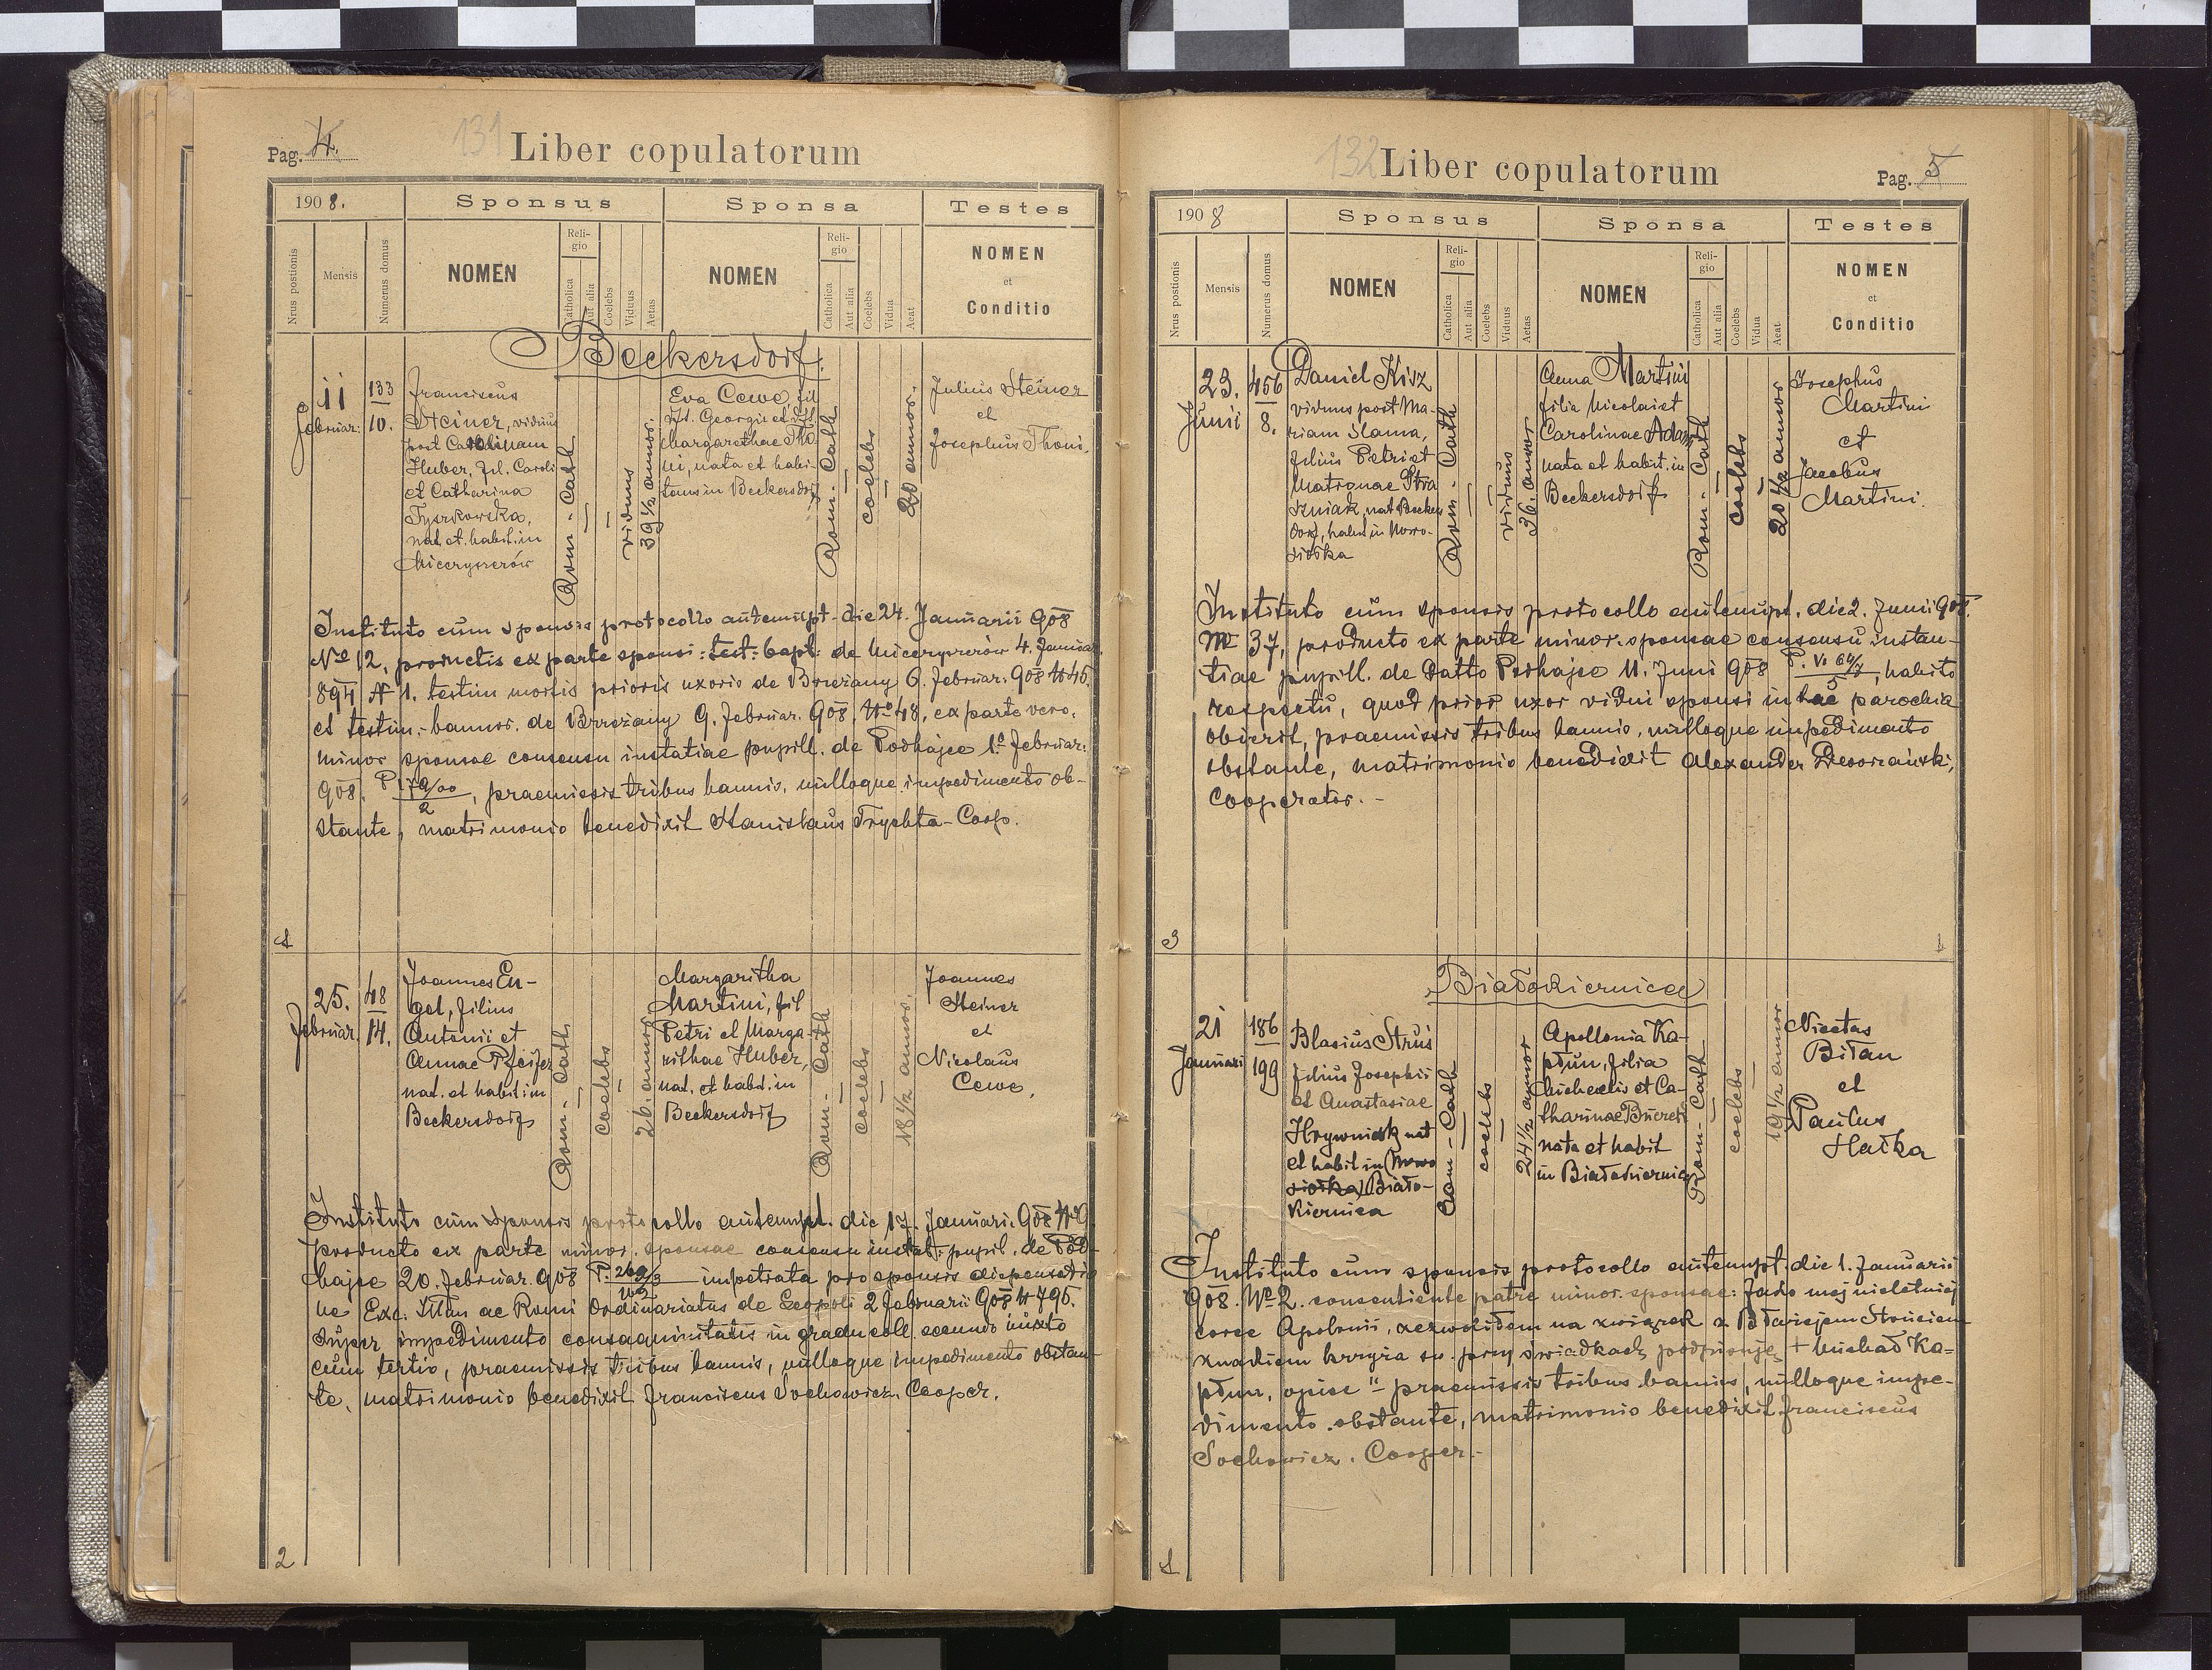 Pag. 4.
131
Liber copulatorum
1908.
Sponsus
Sponsa
Testes
Nrus postionis
Mensis
Numerus domus
NOMEN
Religio
Catholica
Aut alia
Coelebs
Viduus
Aetas
NOMEN
Religio
Catholica
Aut alia
Coelebs
Vidua
Aeat
NOMEN
et
Conditio
Beckersdorf.
1
11
Februar:
133
10.
Franciscus
Steiner, viduus
post
Huber, fil. Caroli
et Catharina
Tyszkowska,
nat. et. habit. in
Mieczyszczów
Rom - Cath
viduus
39 1/2 annor.
Eva Cewe, fil
Georgii et
Margarethae Tho
ni, nata et habi-
tans in Beckersdorf
Rom - Cath
coelebs
20 annor.
Julius Steiner
et
Josephus Thoni.
Instituto cum sponsis protocollo autenupt. die 24. Januarii 908
No 12. productis ex parte sponsi: test: bapt: de Mieczyszczów 4. Januar.
894 N 1. testim mortis prioris uxoris de Brzeżany 6. februar. 908 N 46.
et testim.- bannor. de Brzeżany 9. februar. 908. No 48, ex parte vero.
minor sponsae consensu instatiae pupill. de Podhajce 1. februar:
908. , praemissis tribus bannis, nulloque impedimento ob-
stante, matrimonio benedixit Stanislaus Trychta - Coop.
2
25.
februar.
48
14.
Joannes En-
gel, filius
Antonii et
Annae Pfeifer
nat. et habit in
Beckersdorf
Rom - Cath
coelebs
26. annor
Margaritha
Martini, fil
Petri et Marga-
rithae Huber,
nat. et habit. in
Beckersdorf
Rom - Cath
coelebs
18 1/2 annor.
Joannes
Steiner
et
Nicolaus
Cewe.
Instituto cum sponsis protocollo autenupt. die 17. Januari. 908 No 9.
producto ex parte minor. sponsae consensu instat: pupil. de Pod-
hajce 20. februar. 908 impetrata pro sponsis dispensatio
ne Exc. Ittm ac Romi Ordinariatus de Leopoli 2 februarii 908 N 796.
super impedimento consaquinitatis in gradu coll. secundo mixto
cum tertio, praemissis tribus bannis, nulloque impedimento obstan-
te, matrimonio benedixit franciscus Sochowicz. Cooper.
132
Liber copulatorum
Pag. 5
1908
Sponsus
Sponsa
Testes
Nrus postionis
Mensis
Numerus domus
NOMEN
Religio
Catholica
Aut alia
Coelebs
Viduus
Aetas
NOMEN
Religio
Catholica
Aut alia
Coelebs
Vidua
Aeat
NOMEN
et
Conditio
3
23.
Junii
456
8.
Daniel Kisz
viduus post Ma-
riam Slama,
filius Petri et
Matronae Stra
szniak, nat Becker
dorf, habit in Nowo-
siółka
Rom - Cath
viduus
36. annor
Anna Martini
filia Nicolai et
Carolinae Adam
nata et habit. in
Beckersdorf
Rom - Cath
coelebs
20 1/2 annor
Josephus
Martini
et
Jacobus
Martini.
Instituto cum sponsis protocollo autenupt. die 2. Junii 908.
No 37, producto ex parte minor. sponsae consensu instan-
tiae pupill. de Datto Podhajce 11. Juni 908 , habito
respectu, quod prior uxor vidui sponsi in hac parochia
obierit, praemissis tribus bannis, nulloque impedimento
obstante, matrimonio benedixit Alexander Dworzański,
Cooperator. -
Białokiernica
1
21
Januari
186
199
Blasius Struś
filius Josephii
et Anastasiae
Hrywniak nat
et habit in (Nowo
siółka) Biało-
kiernica
Rom - Cath
coelebs
24 1/2 annor
Apollonia Ka-
płun, filia
Michaelis et Ca-
tharinae
nata et habit
in Białokiernica
Rom - Cath
coelebs
19 1/2 annor
Nicetas
Bilan
et
Paulus
Hałka
Instituto cum sponsis protocollo autenupt. die 1. Januarii
908. No 2. consentiente patre minor. sponsae: Jako mej nieletniej
córce Apolonii, zezwalam na związek z Błażejem Strusiem
znakiem krzyża św. przy świadkach podpisuję + Michał Ka-
płun, ojciec" - praemissis tribus bannis, nulloque impe-
dimento obstante, matrimonio benedixit franciscus
Sochowicz. Cooper.-